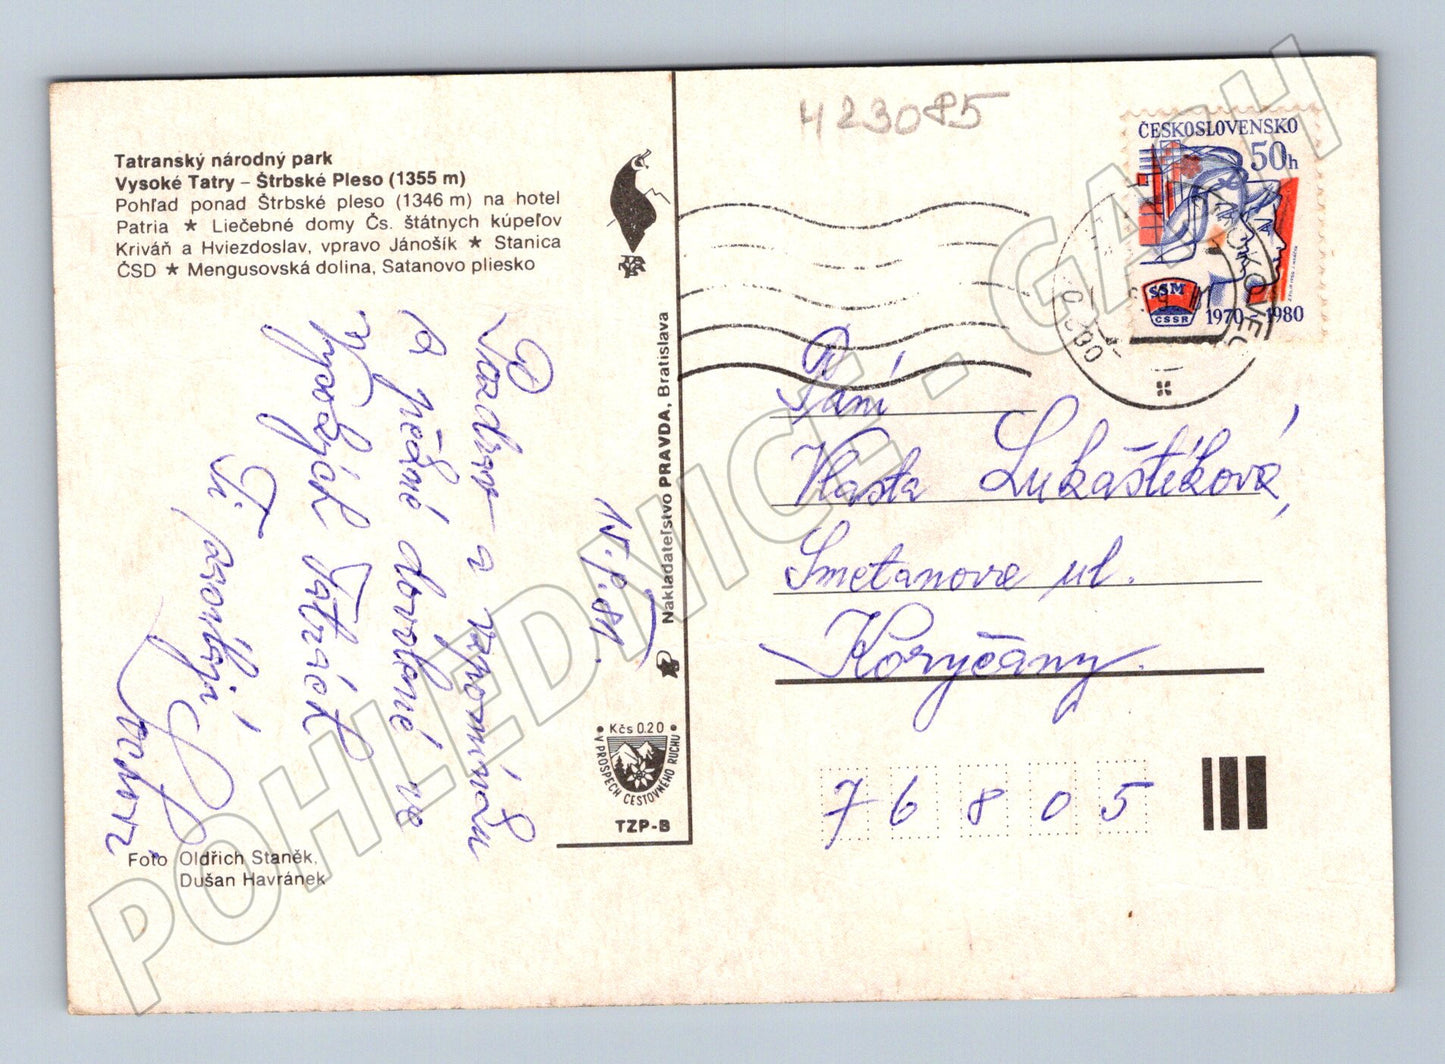 423085
Tatranský národný park
Vysoké Tatry – Štrbské Pleso (1355 m)
Pohľad ponad Štrbské pleso (1346 m) na hotel
Patria ★ Liečebné domy Čs. štátnych kúpeľov
Kriváň a Hviezdoslav, vpravo Jánošík ★ Stanica
ČSD ★ Mengusovská dolina, Satanovo pliesko
Pozdrav a vzpomínku
a pěkné dovolené ve
Vysokých Tatrách
Ti posílají
Foto Oldřich Staněk,
Dušan Havránek
Nakladateľstvo PRAVDA, Bratislava
Kčs 0.20
V PROSPECH CESTOVNÉHO RUCHU
TZP-B
ČESKOSLOVENSKO
50h
SSM
ČSSR
1970–1980
Paní
Vlasta Lukaštíková,
Smetanova ul.
Koryčany
76805
POHLEDNICE - GACH